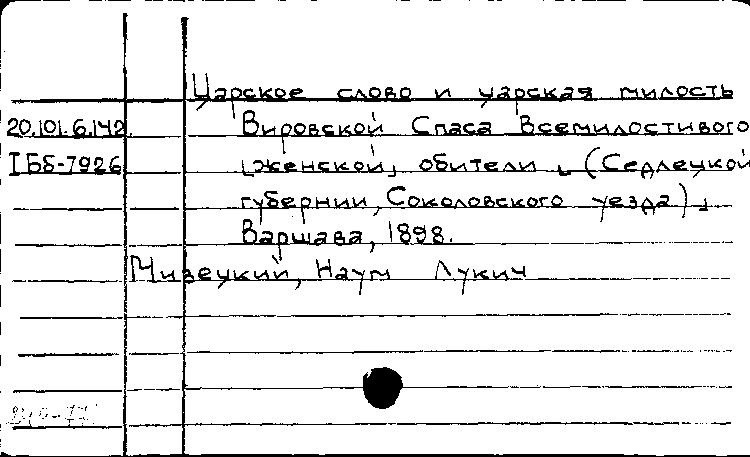 Царское слово и царская милость
20.101.6.142 Вировской Спаса Всемилостивого
IББ-7926 [женской] обители [(Седлецкой
губернии, Соколовского уезда)]
Варшава, 1898.
Мизецкий, Наум Лукич